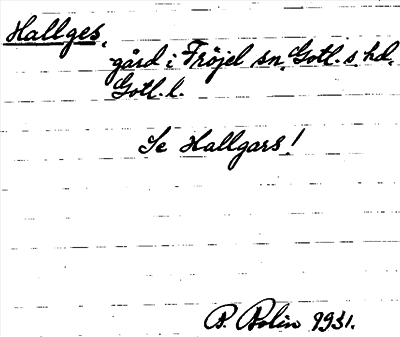 Hallges,
gård i Fröjel sn, Gotl. s. hd,
Gotl. l.
Se Hallgars!
B. Bolin 1931.